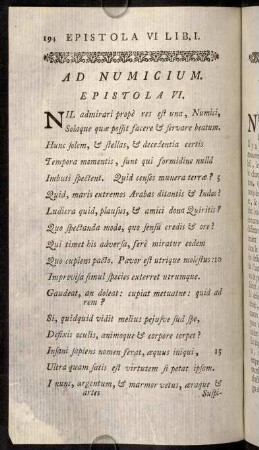 194 EPISTOLA VI LIB. I.
AD NUMICIUM.
EPISTOLA VI.
NIL admirari propè res est una, Numici,
Solaque quæ possit facere & servare beatum.
Hunc solem, & stellas, & decedentia certis
Tempora momentis, sunt qui formidine nullâ
Imbuti spectent. Quid censes munera terræ? 5
Quid, maris extremos Arabas ditantis & Indos?
Ludicra quid, plausus, & amici dona Quiritis?
Quo spectanda modo, quo sensu credis & ore?
Qui timet his adversa, ferè miratur eodem
Quo cupiens pacto. Pavor est utrique molestus: 10
Improvisa simul species exterret utrumque.
Gaudeat, an doleat: cupiat metuatne: quid ad
rem?
Si, quidquid vidit melius pejusve suâ spe,
Defixis oculis, animoque & corpore torpet?
Insani sapiens nomen ferat, æquus iniqui, 15
Ultra quàm satis est virtutem si petat ipsam.
I nunc, argentum, & marmor vetus, æraque &
artes Suspi-